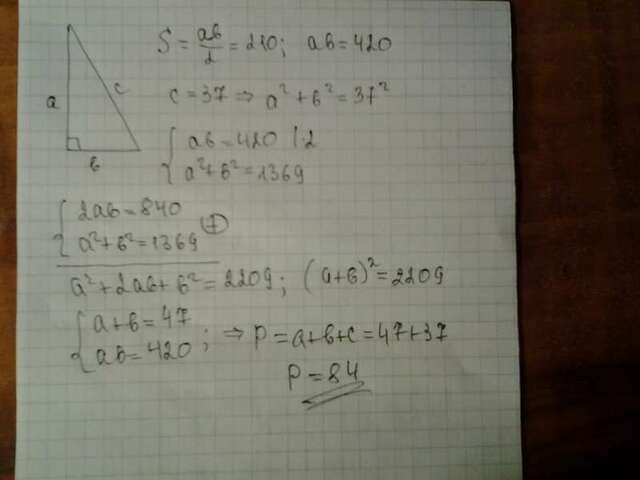 S = ab/2 = 210; ab = 420
a
c
b
c = 37 ⇒ a² + b² = 37²
{ ab = 420 |·2
a² + b² = 1369
{ 2ab = 840
a² + b² = 1369 (+)
a² + 2ab + b² = 2209; (a+b)² = 2209
{ a + b = 47
ab = 420 ; ⇒ P = a+b+c = 47+37
P = 84